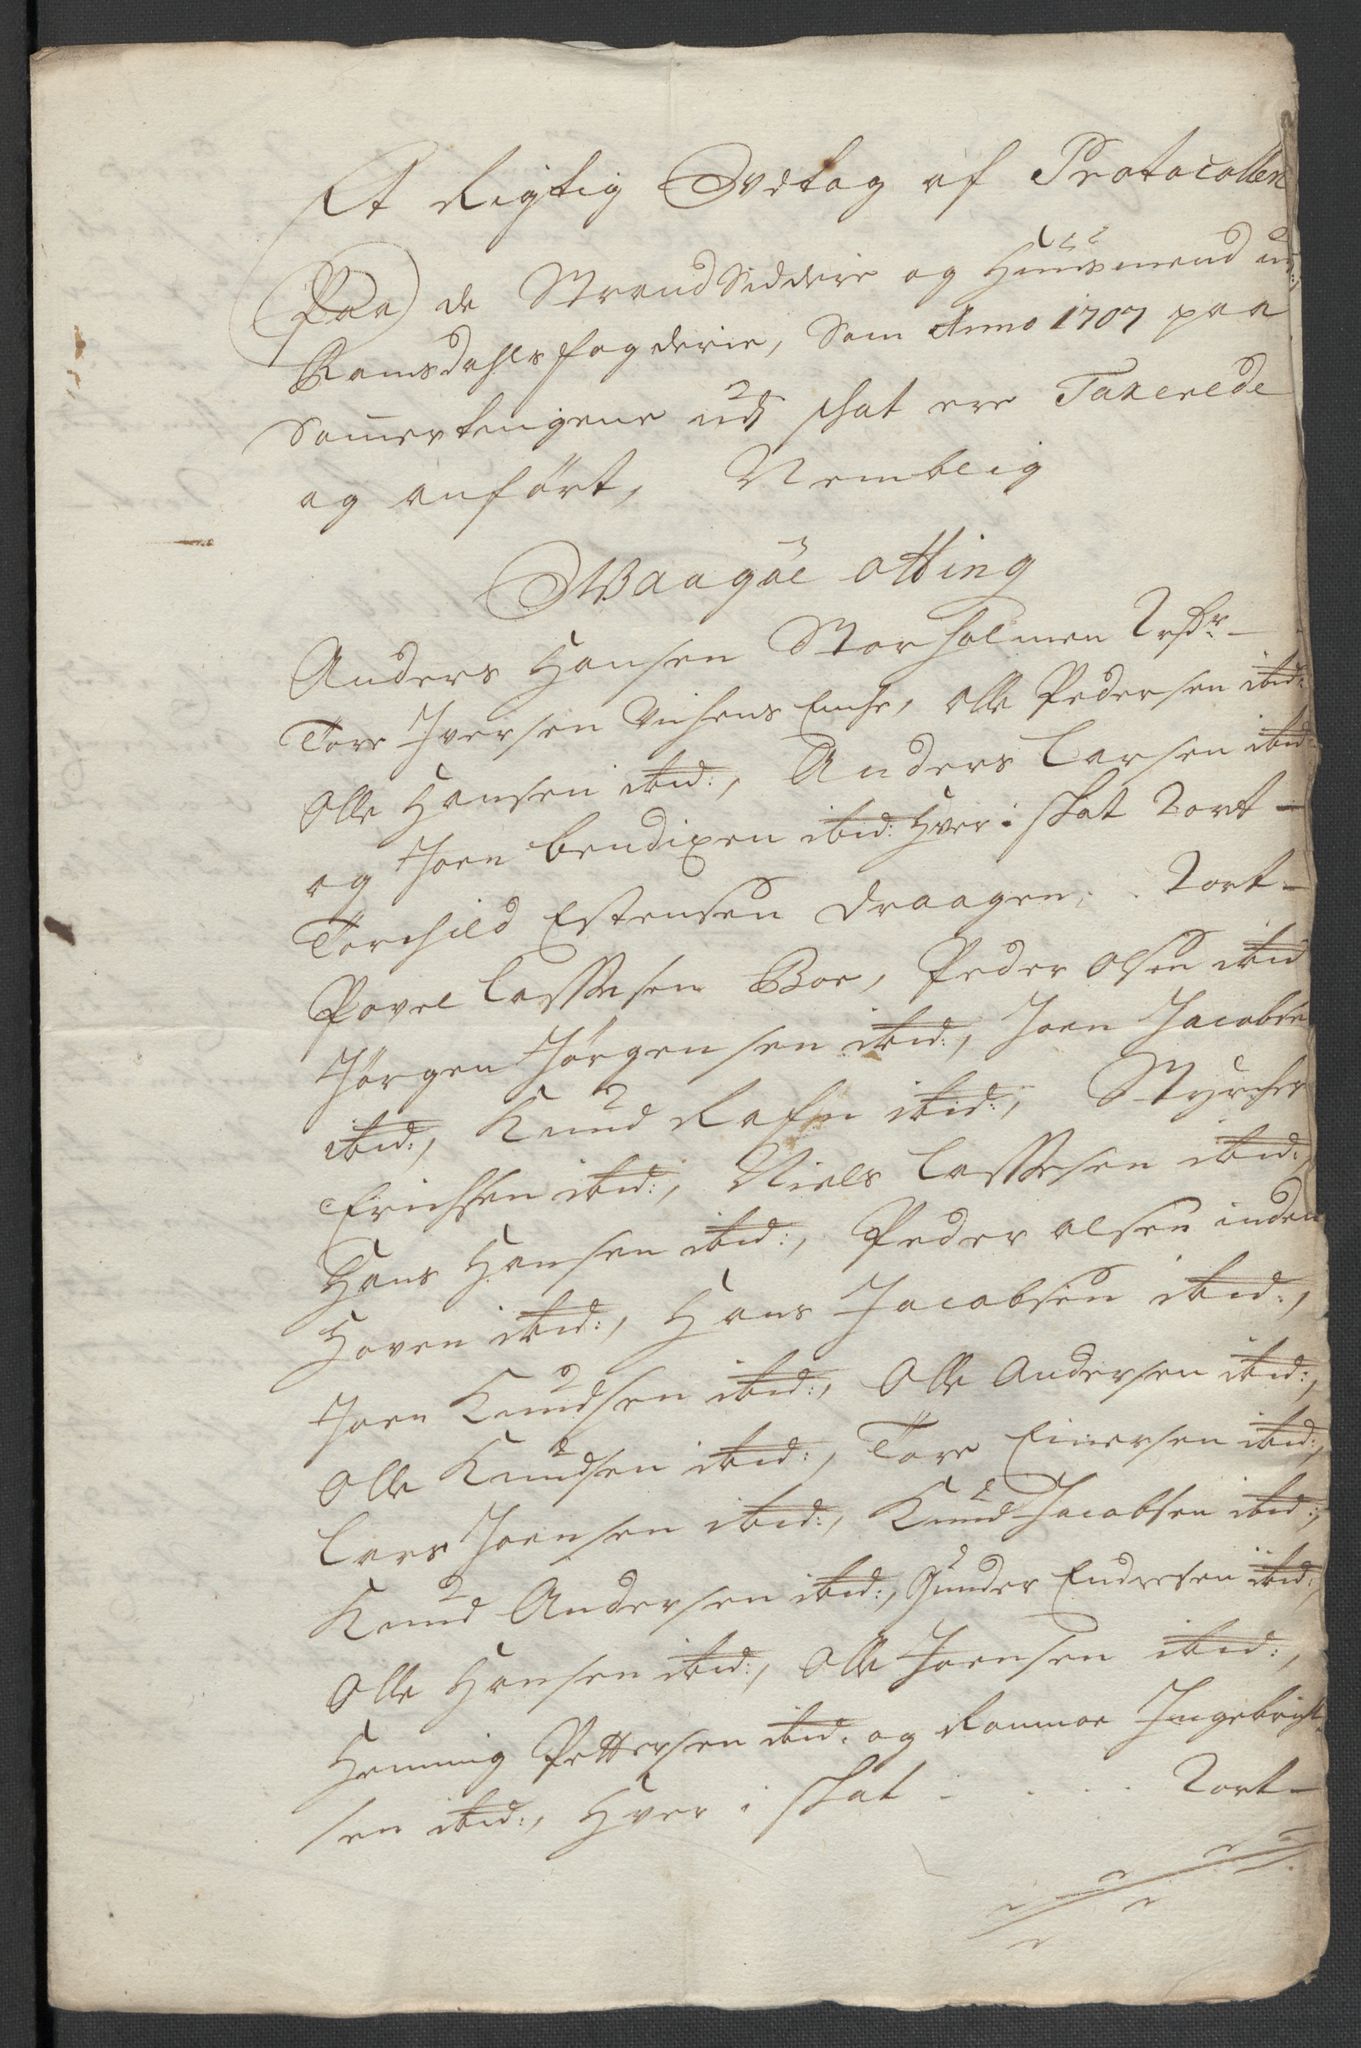 Et Rigtig Udtog af Protocollen
Paa de StrandSiddere og Huusmend u:
Romsdahls fogderie, Som Anno 1707 paa
Somertingene udj skat ere Taxerede
og anført, Nemblig
Waagøe otting
Anders Hansen Storholmen
Tore Iversen Olle Pedersen ibid:
Olle Hansen ibid:, Anders Larsen ibid
og Joen bendixen ibid: Hver i skat 2 ort –
Torchild Estensen Draagen . . 2 ort –
Povel Lassesen Boe, Peder olsen ibid
Jørgen Jørgensen ibid:, Joen Jacobse
ibid:, Knud Rafn ibid:, Styrcher
Erichsen ibid:, Niels Lassesen ibid:,
Hans Hansen ibid:, Peder olsen inden
Haven ibid:, Hans Jacobsen ibid:,
Joen Knudsen ibid:, Olle Andersen ibid:,
Olle Knudsen ibid:, Tore Einersen ibid:,
Lars Joensen ibid:, Knud Jacobsen ibid:,
Knud Andersen ibid:, Gunder Endresen ibid:,
Olle Hansen ibid:, Olle Joensen ibid:,
Heming Pettersen ibid: og Rasmus Ingebrigt
sen ibid:, Hver i skat . . . 2 ort –